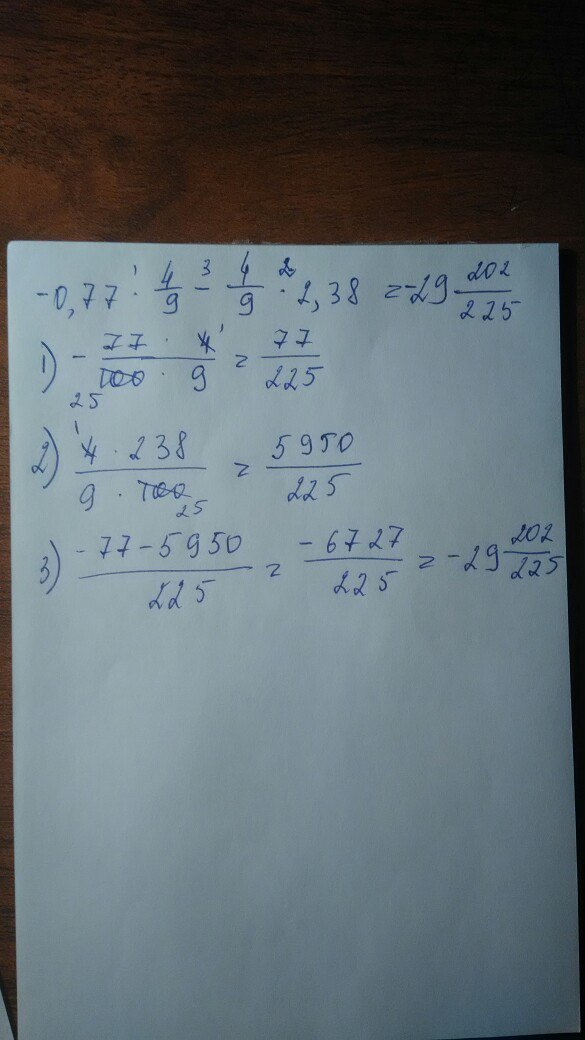 -0,77 · 4/9 - 4/9 · 2,38 = -29 202/225
1) - 77 · 4/100 · 9 = 77/225
2) 4 · 238/9 · 100 = 5950/225
3) -77-5950/225 = -6727/225 = -29 202/225